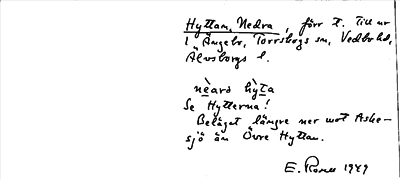 Hyttan, Nedra, förr t. Till nr
1 Ängebr, Torrskogs sn, Vedbo hd,
Älvsborgs l.
nèarə hy̆ta
Se Hytterna!
Beläget längre ner mot Aske-
sjö än Övre Hyttan.
E. 1949